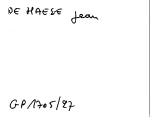 DE HAESE Jean
GP1705/27